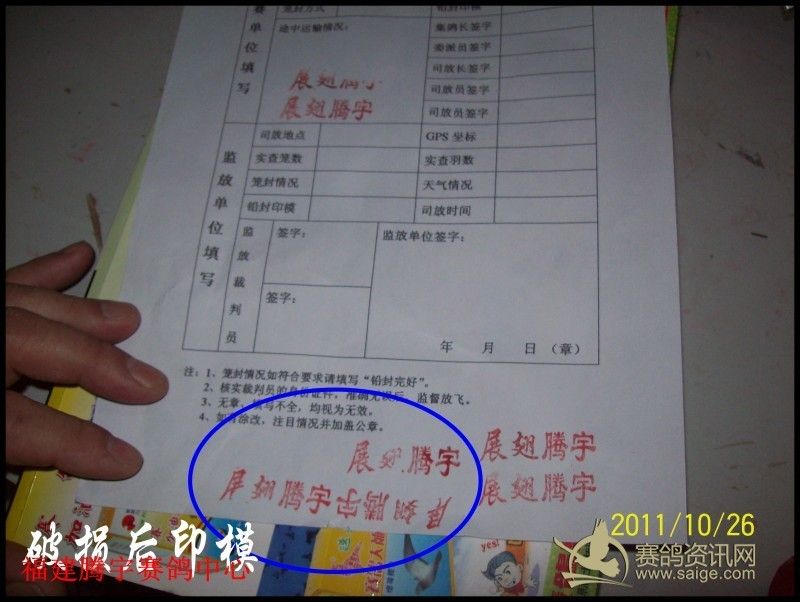 赛单位填写
笼封方式
铅封印模
途中运输情况：
集鸽长签字
委派员签字
司放长签字
司放员签字
司放员签字
展翅腾宇
展翅腾宇
监放单位填写
司放地点
GPS 坐标
实查笼数
实查羽数
笼封情况
天气情况
铅封印模
司放时间
监放裁判员
签字：
监放单位签字：
签字：
年 月 日（章）
注：1、笼封情况如符合要求请填写“铅封完好”。
2、核实裁判员的身份证件，准确无误后，监督放飞。
3、无章、填写不全，均视为无效。
4、如有涂改，注目情况并加盖公章。
展翅腾宇
展翅腾宇
展翅腾宇
展翅腾宇
展翅腾宇
yes!
2011/10/26
破损后印模
福建腾宇赛鸽中心
赛鸽资讯网
www.saige.com